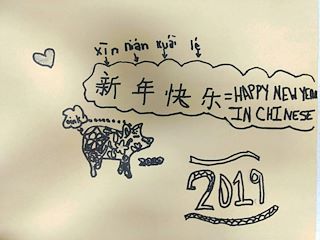 xīn nián kuài lè
新年快乐=HAPPY NEW YEAR
IN CHINESE
oink
2019
2019